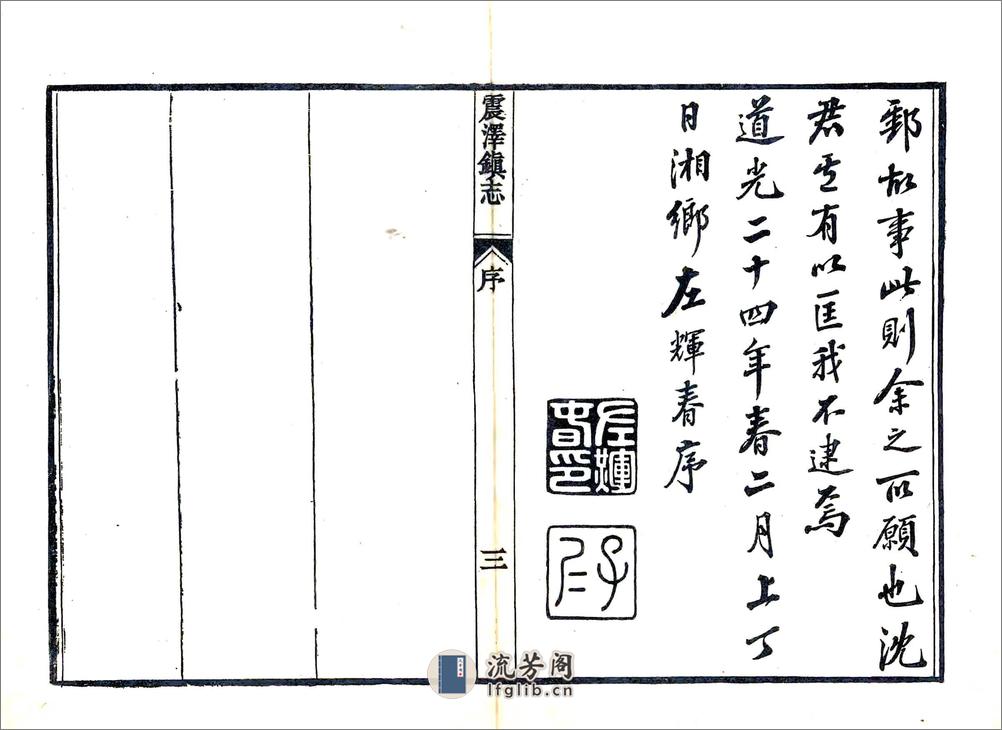 故事此則余之所願也沈
君其有以匡我不逮焉
道光二十四年春二月上丁
日湘鄉左輝春序
左輝春印
子仁
震澤鎮志
序
三
流芳阁
lfglib.cn